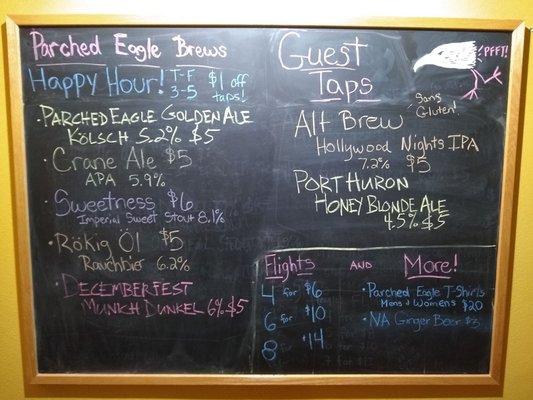 Parched Eagle Brews
Happy Hour! T-F
3-5
$1 off
taps!
• Parched Eagle Golden Ale
Kölsch 5.2% $5
• Crane Ale $5
APA 5.9%
• Sweetness $6
Imperial Sweet Stout 8.1%
• Rökig Öl $5
Rauchbier 6.2%
• Decemberfest
Munich Dunkel 6% $5
Guest
Taps
PFFT!
Sans
Gluten!
Alt Brew
Hollywood Nights IPA
7.2% $5
Port Huron
Honey Blonde Ale
4.5% $5
Flights and More!
4 for $6
6 for $10
8 for $14
• Parched Eagle T-Shirts
Mens & Womens $20
• NA Ginger Beer $3